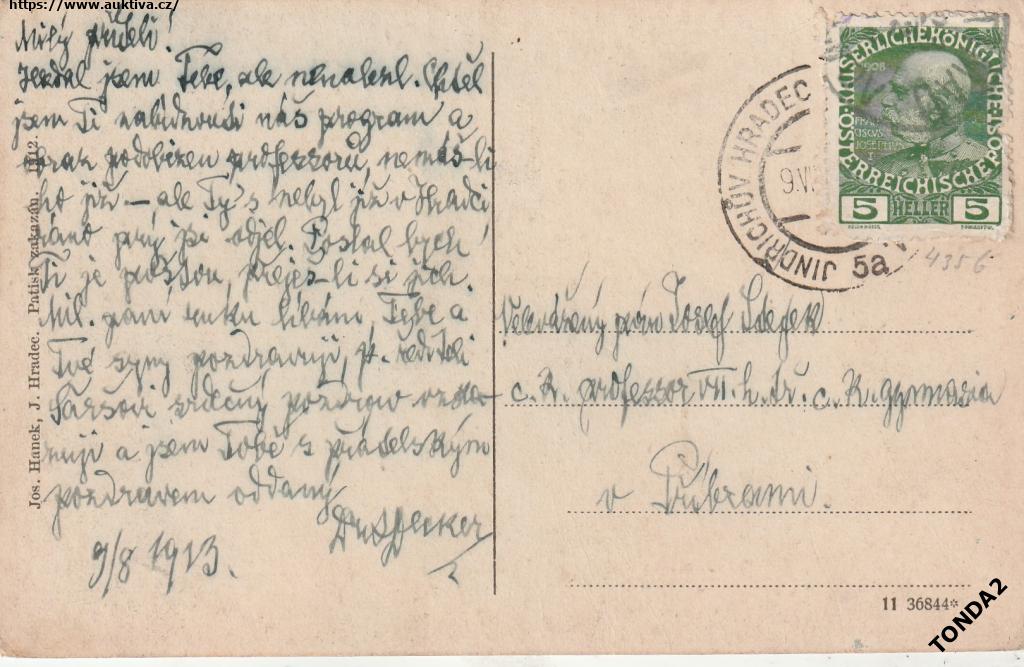 https://www.auktiva.cz/
Milý příteli!
Hledal jsem Tebe, ale nenalezl. Chtěl
jsem Ti nabídnouti náš program a
obraz podobizen professorů, nemáš-li
ho již –, ale Ty's nebyl již v Hradci
ráno prý jsi odjel. Poslal bych
Ti je poštou, přeješ-li si jich.
Mil. paní ruku líbám, Tebe a
Tvé syny pozdravuji, p. řediteli
srdečný pozdrav vzka-
zuji a jsem Tobě s přátelským
pozdravem oddaný
9/8 1913.
Jos. Hanek, J. Hradec. Patisk zakázán. 1912.
KAISERLICHE KÖNIGLICHE POST
ÖSTERREICHISCHE
1908
FRAN
CISCUS
JOSEPHUS
I
5 HELLER 5
JINDŘICHŮV HRADEC
9.VI
5a
4356
Velevážený pán Josef
c. k. professor VII. h. tř. c. k. gymnasia
v Příbrami.
11 36844*
TONDA2